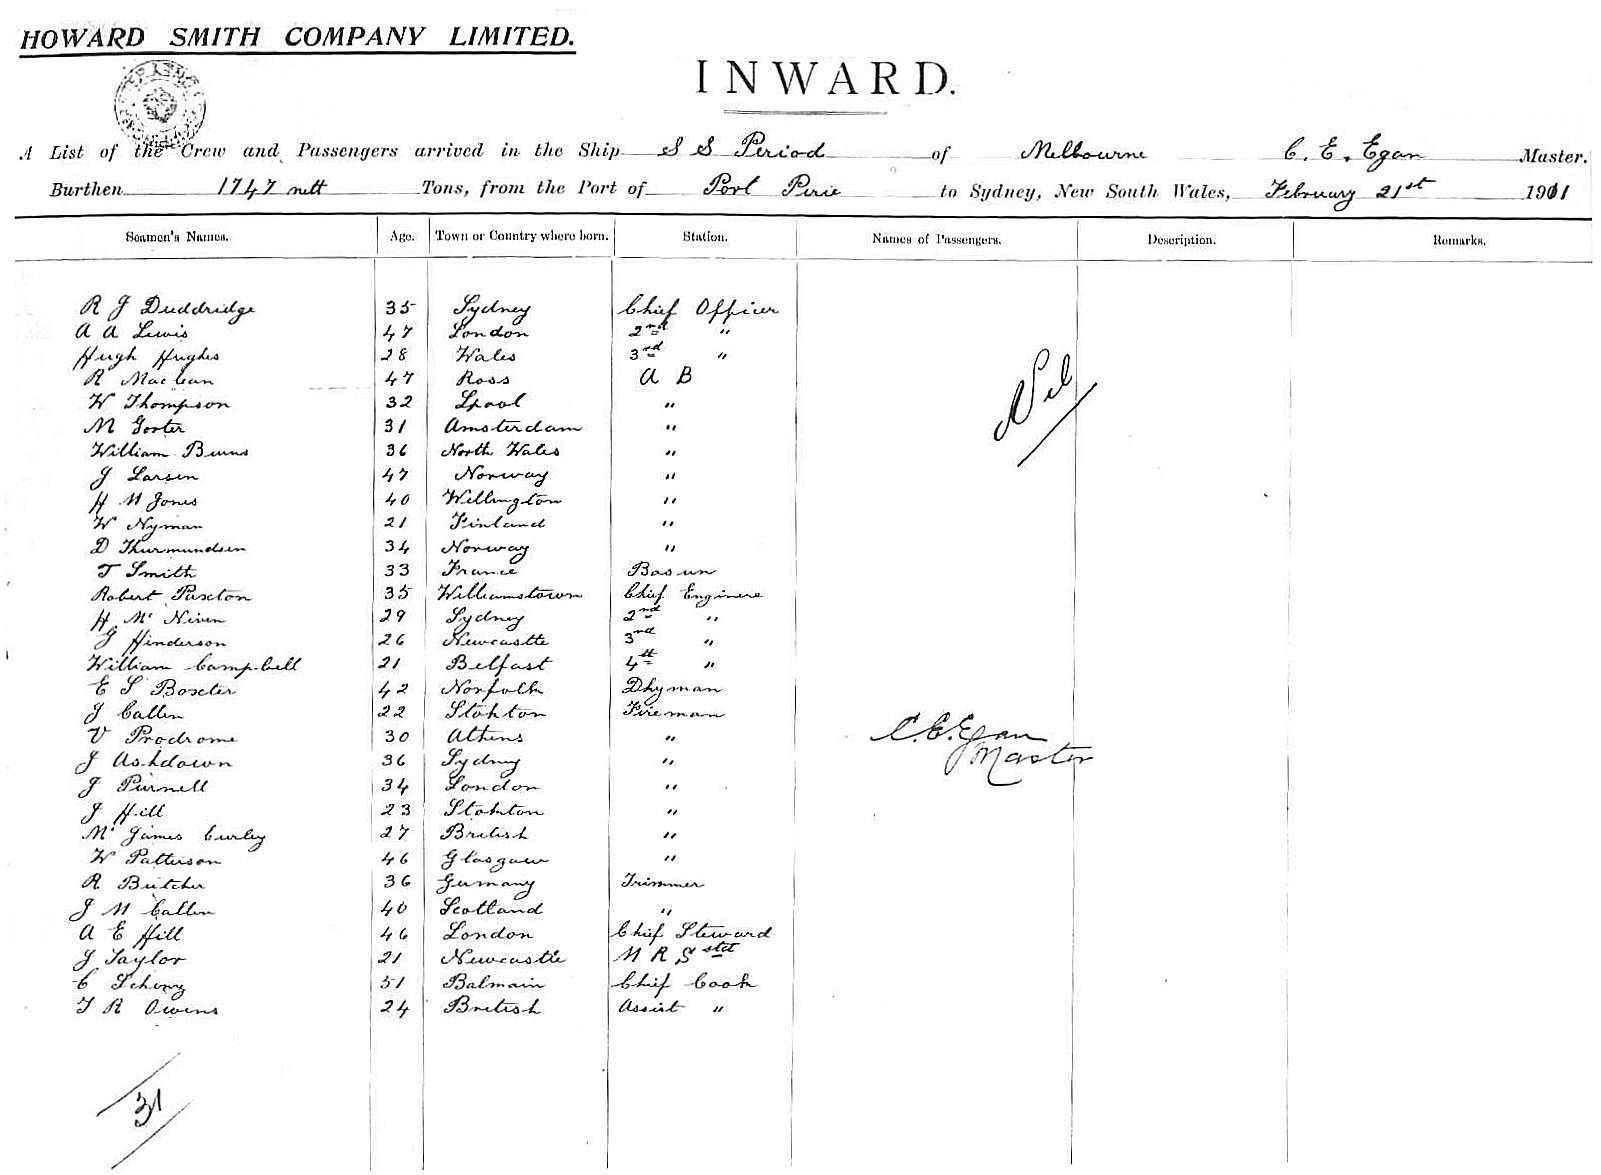 HOWARD SMITH COMPANY LIMITED.
INWARD.
A List of the Crew and Passengers arrived in the Ship S S Period of Melbourne C. E. Egan Master.
Burthen 1747 nett Tons, from the Port of Port Pirie to Sydney, New South Wales, February 21st 1911
Seamen's Names. Age. Town or Country where born. Station. Names of Passengers. Description. Remarks.
R J Duddridge 35 Sydney Chief Officer
A A Lewis 47 London 2nd "
Hugh Hughes 28 Wales 3rd "
R Maclean 47 Ross A B
Nil
W Thompson 32 Lpool "
M Gorter 31 Amsterdam "
William Burns 36 North Wales "
J Larsen 47 Norway "
H M Jones 40 Wellington "
W Nyman 21 Finland "
D Thurmundsen 34 Norway "
T Smith 33 France Bosun
Robert Paxton 35 Williamstown Chief Engineer
H Mc Niven 29 Sydney 2nd "
G Hinderson 26 Newcastle 3rd "
William Campbell 21 Belfast 4th "
E S Boxter 42 Norfolk Dkyman
J Callen 22 Stokton Fireman
V Prodrome 30 Athens "
C. E. Egan
Master
J Ashdown 36 Sydney "
J Purnell 34 London "
J Hill 23 Stokton "
Mc James Curley 27 British "
W Patterson 46 Glasgow "
R Butcher 36 Germany Trimmer
J M Callen 40 Scotland "
A E Hill 46 London Chief Steward
J Taylor 21 Newcastle M R S std
C 51 Balmain Chief Cook
T R Owens 24 British Assist "
31